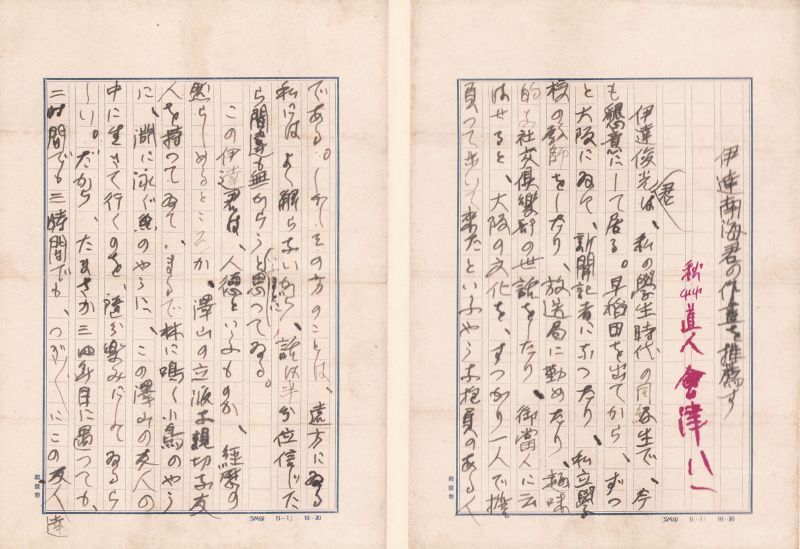 伊達南海君の作畫を推薦す
秋艸道人 會津八一
伊達俊光君は、私の學生時代の同級生で、今
も懇意にして居る。早稲田を出てから、ずつ
と大阪にゐて、新聞記者になつたり、私立學
校の教師をしたり、放送局に勤めたり、趣味
的な社交倶樂部の世話をしたり、御當人に云
はせると、大阪の文化を、すつかり一人で擔
負つて歩いて来たといふやうな抱負のある人
である。しかしその方のことは、遠方にゐる
私にはよく解らないから、話は半分位信じた
ら間違も無からうと思つてゐる。
この伊達君は、人徳といふものか、經歴の
然らしめるところか、澤山の立派な親切な友
人を持つてゐて、まるで林に鳴く小鳥のやう
に、淵に泳ぐ魚のやうに、この澤山の友人の
中に生きて行くのを、随分樂みにしてゐるら
しい。だから、たまさか三四年目に遇つても、
二時間でも三時間でも、つづけにこの友人達
(SM印 B—1) 10—20
(SM印 B—1) 10—20